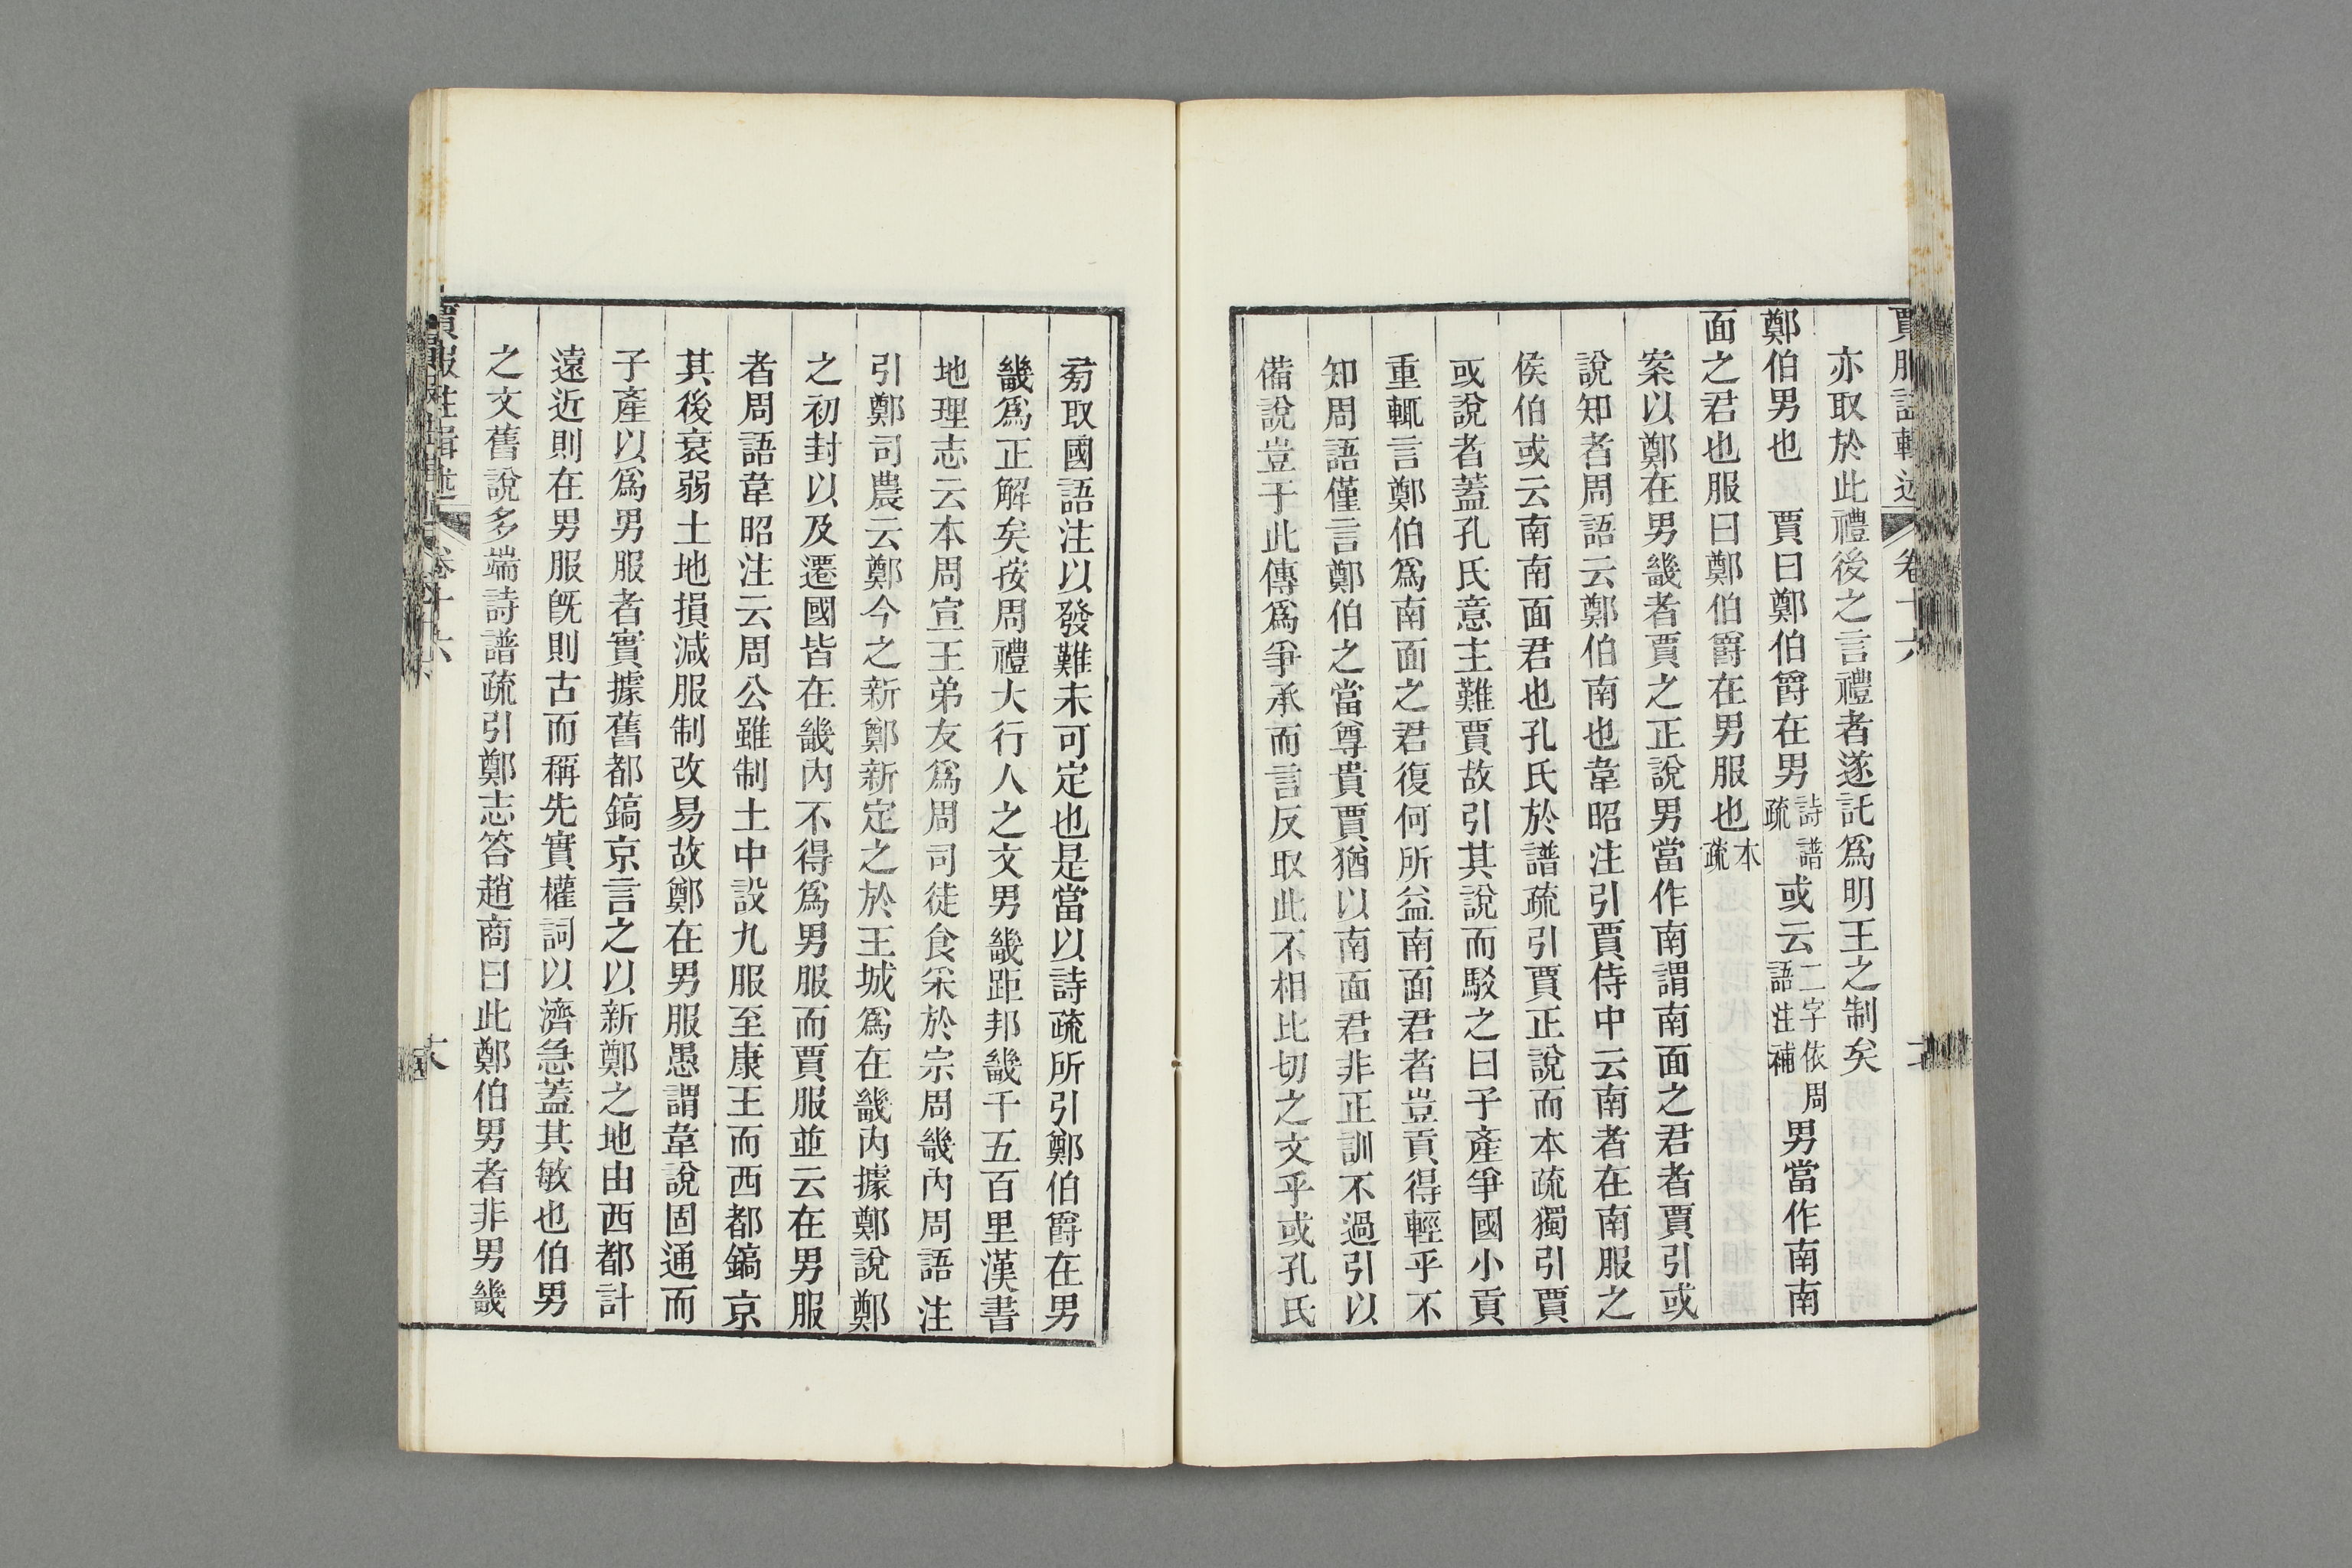 亦取於此禮後之言禮者遂託爲明王之制矣
鄭伯男也　賈曰鄭伯爵在男詩譜疏或云二字依周語注補男當作南南
面之君也服曰鄭伯爵在男服也本疏
案以鄭在男畿者賈之正說男當作南謂南面之君者賈引或
說知者周語云鄭伯南也韋昭注引賈侍中云南者在南服之
侯伯或云南南面君也孔氏於譜疏引賈正說而本疏獨引賈
或說者蓋孔氏意主難賈故引其說而駁之曰子產爭國小貢
重輒言鄭伯爲南面之君復何所益南面君者豈貢得輕乎不
知周語僅言鄭伯之當尊貴賈猶以南面君非正訓不過引以
備說豈于此傳爲爭承而言反取此不相比切之文乎或孔氏
菊取國語注以發難未可定也是當以詩疏所引鄭伯爵在男
畿爲正解矣按周禮大行人之文男畿距邦畿千五百里漢書
地理志云本周宣王弟友爲周司徒食采於宗周畿內周語注
引鄭司農云鄭今之新鄭新定之於王城爲在畿內據鄭說鄭
之初封以及遷國皆在畿內不得爲男服而賈服並云在男服
者周語韋昭注云周公雖制土中設九服至康王而西都鎬京
其後衰弱土地損減服制改易故鄭在男服愚謂韋說固通而
子產以爲男服者實據舊都鎬京言之以新鄭之地由西都計
遠近則在男服旣則古而稱先實權詞以濟急蓋其敏也伯男
之文舊說多端詩譜疏引鄭志答趙商曰此鄭伯男者非男畿